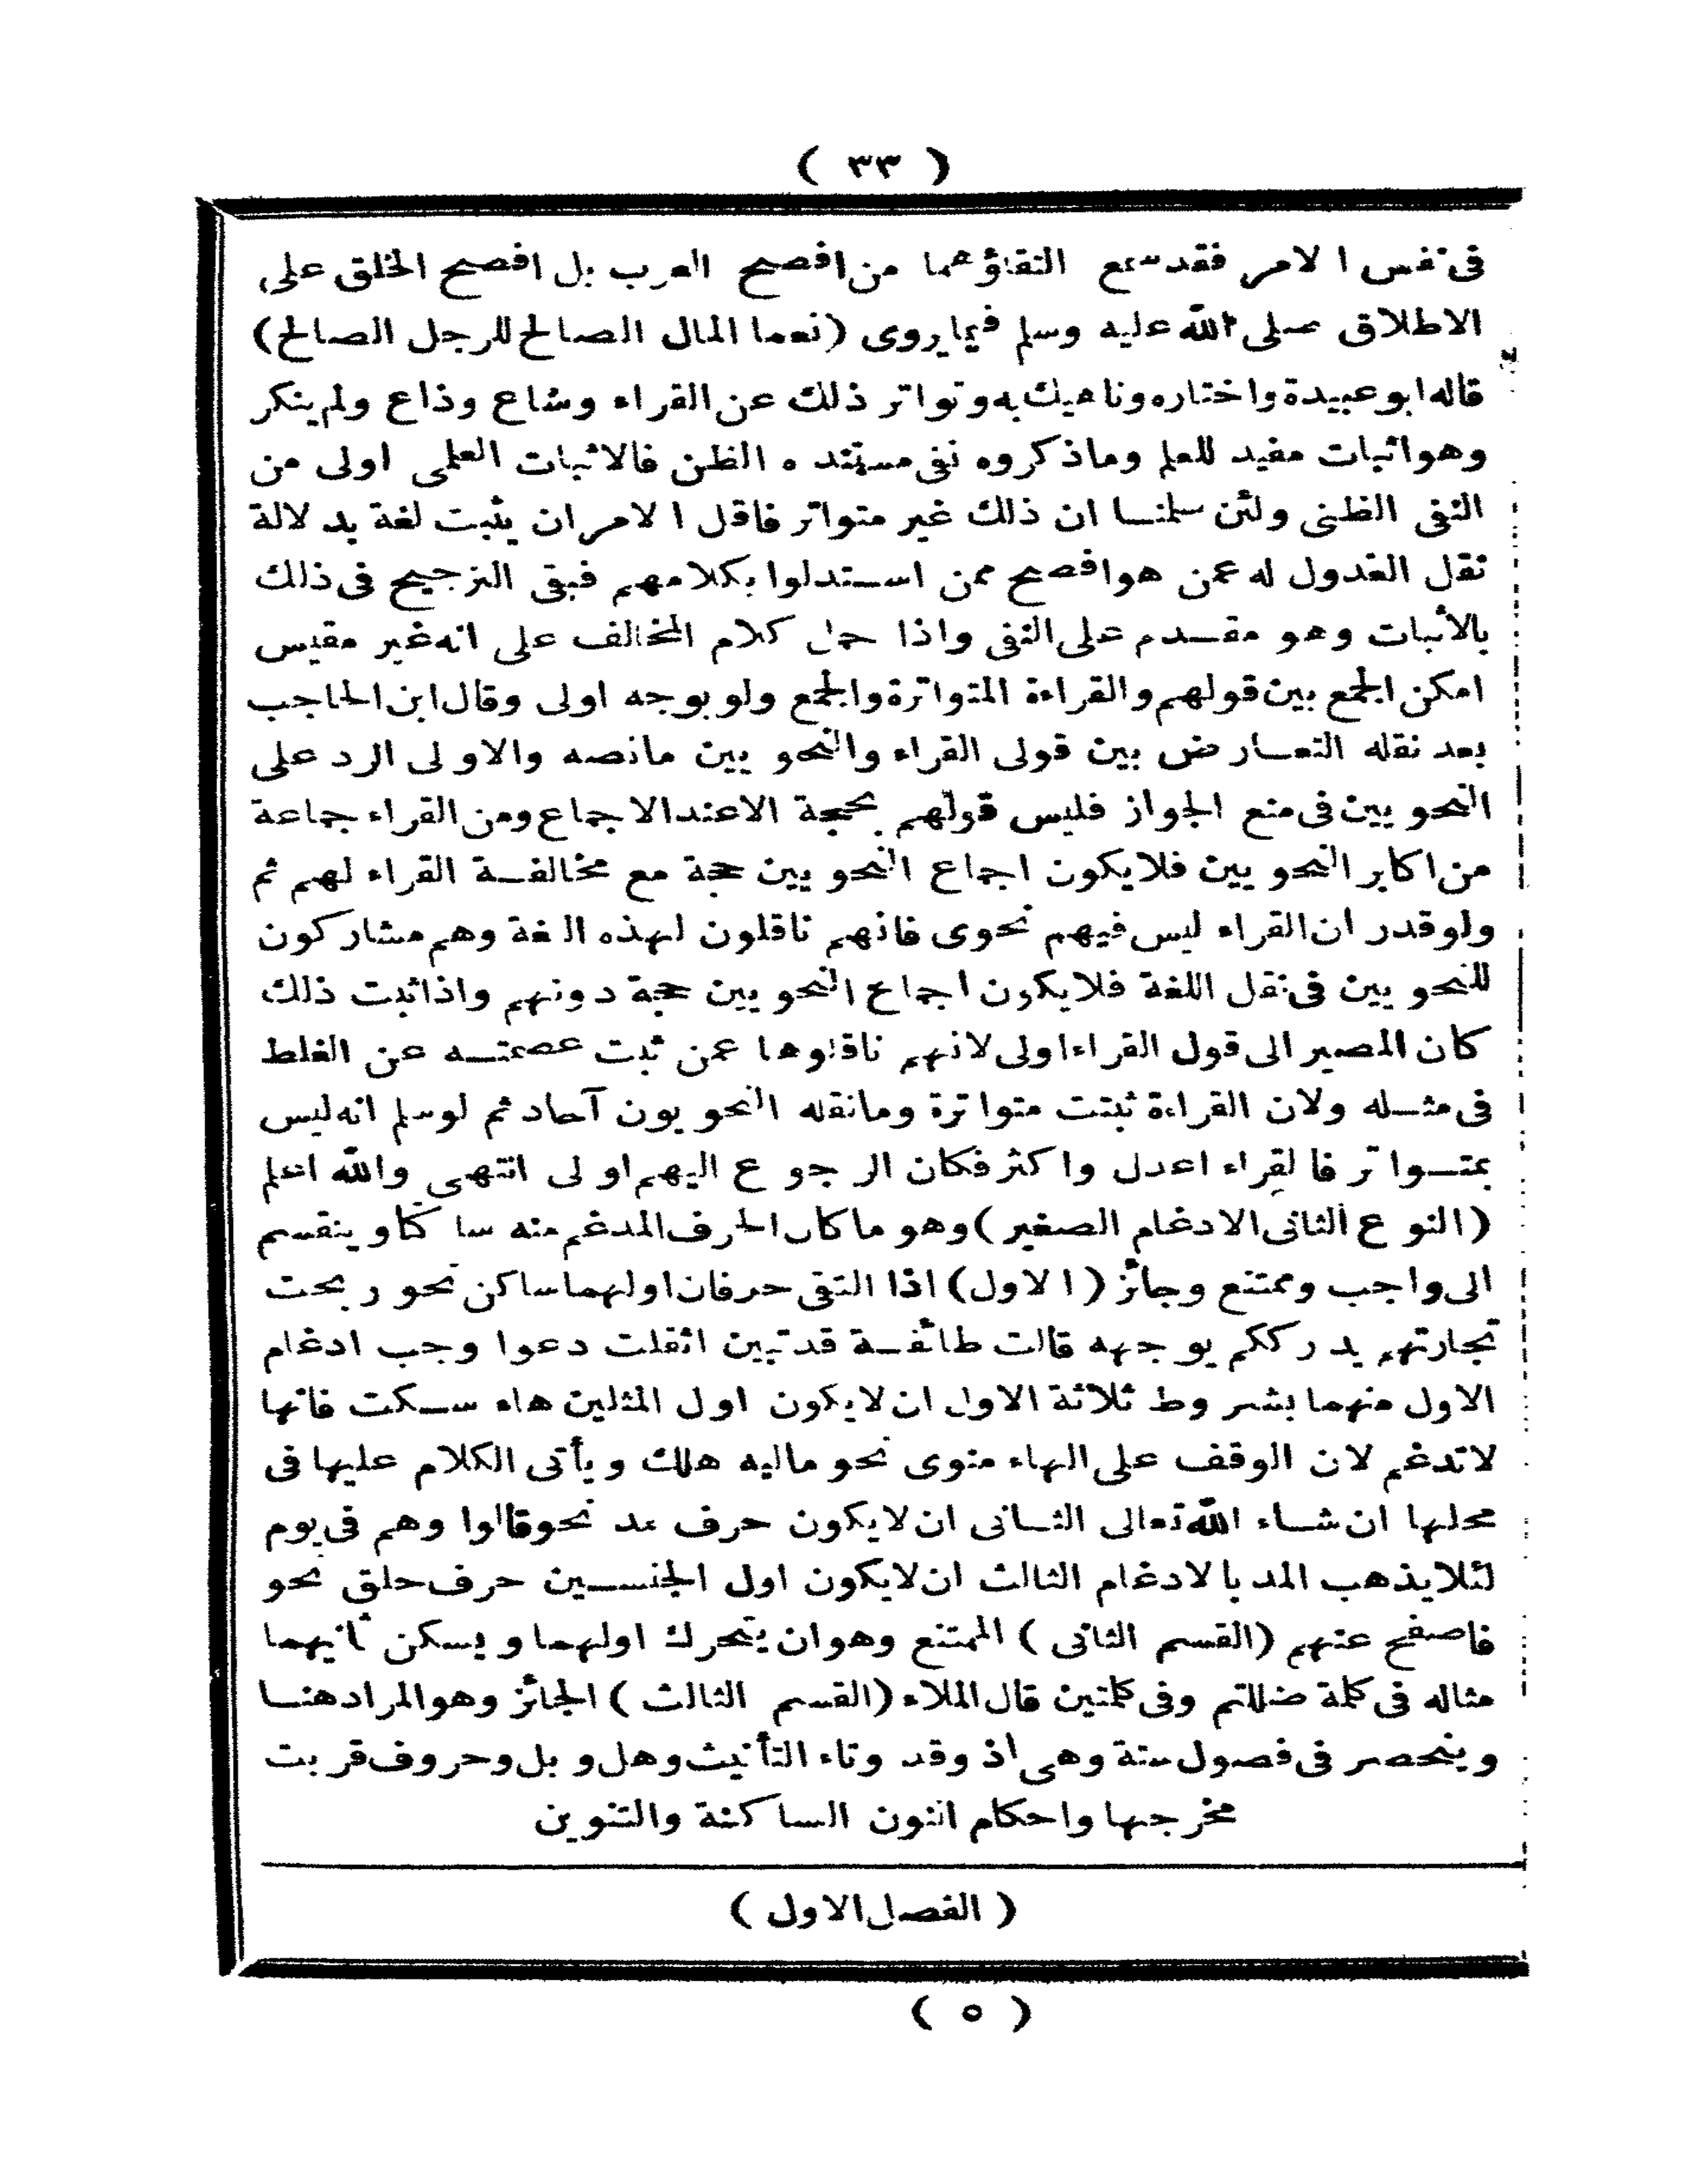 ( ٣٣ )
فى نفس الامر فقد سمع التقاؤهما من افصح العرب بل افصح الخلق على
الاطلاق صلى الله عليه وسلم فيما يروى (نعما المال الصالح للرجل الصالح)
قاله ابو عبيدة واختاره وناهيك به وتواتر ذلك عن القراء وشاع وذاع ولم ينكر
وهو اثبات مفيد للعلم وما ذكروه نفى مستنده الظن فالاثبات العلمى اولى من
النفى الظنى ولئن سلمنا ان ذلك غير متواتر فاقل الامر ان يثبت لغة بدلالة
نقل العدول له عمن هو افصح ممن استدلوا بكلامهم فبقى الترجيح فى ذلك
بالأثبات وهو مقدم على النفى واذا حمل كلام المخالف على انه غير مقيس
امكن الجمع بين قولهم والقراءة المتواترة والجمع ولو بوجه اولى وقال ابن الحاجب
بعد نقله التعارض بين قولى القراء والنحويين مانصه والاولى الرد على
النحويين فى منع الجواز فليس قولهم بحجة الا عند الاجماع ومن القراء جماعة
من اكابر النحويين فلا يكون اجماع النحويين حجة مع مخالفة القراء لهم ثم
ولو قدر ان القراء ليس فيهم نحوى فانهم ناقلون لهذه الغة وهم مشاركون
للنحويين فى نقل اللغة فلا يكون اجماع النحويين حجة دونهم واذا ثبت ذلك
كان المصير الى قول القراء اولى لانهم ناقلوها عمن ثبت عصمته عن الغلط
فى مثله ولان القراءة ثبتت متواترة وما نقله النحويون آحاد ثم لو سلم انه ليس
بمتواتر فالقراء اعدل واكثر فكان الرجوع اليهم اولى انتهى والله اعلم
(النوع الثانى الادغام الصغير) وهو ما كان الحرف المدغم منه ساكنا وينقسم
الى واجب وممتنع وجائز (الاول) اذا التقى حرفان اولهما ساكن نحو ربحت
تجارتهم يدرككم يوجهه قالت طائفة قد تبين اثقلت دعوا وجب ادغام
الاول منهما بشروط ثلاثة الاول ان لا يكون اول المثلين هاء سكت فانها
لا تدغم لان الوقف على الهاء منوى نحو ماليه هلك ويأتى الكلام عليها فى
محلها ان شاء الله تعالى الثانى ان لا يكون حرف مد نحو قالوا وهم فى يوم
لئلا يذهب المد بالادغام الثالث ان لا يكون اول الجنسين حرف حلق نحو
فاصفح عنهم (القسم الثانى) الممتنع وهو ان يتحرك اولهما ويسكن ثانيهما
مثاله فى كلمة ضللتم وفى كلمتين قال الملاء (القسم الثالث) الجائز وهو المراد هنا
وينحصر فى فصول ستة وهى اذ وقد وتاء التأنيث وهل وبل وحروف قربت
مخرجها واحكام النون الساكنة والتنوين
(الفصل الاول)
( ٥ )